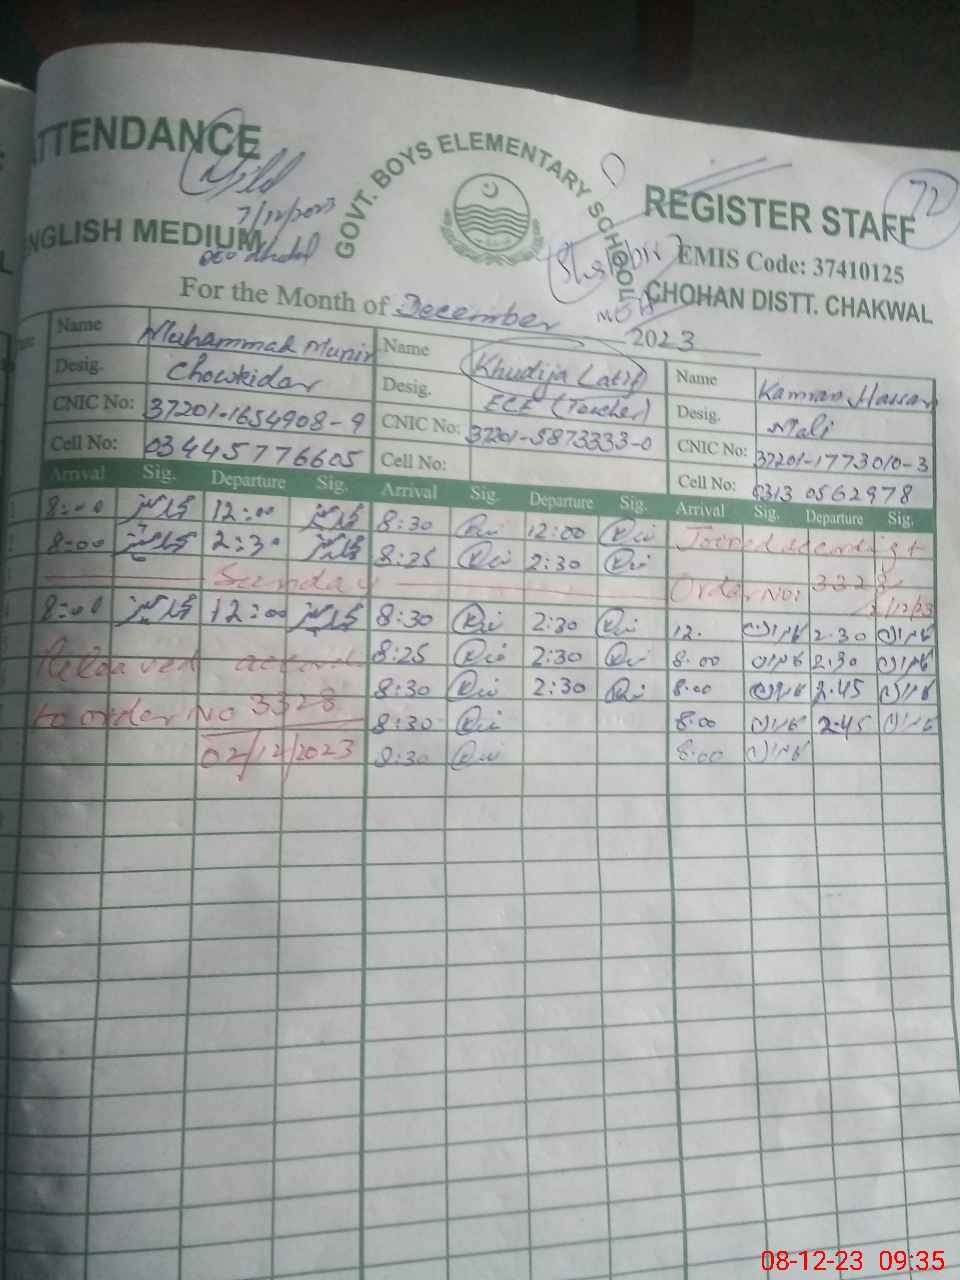 ATTENDANCE
GOVT. BOYS ELEMENTARY SCHOOL
REGISTER STAFF
72
7/12/2023
ENGLISH MEDIUM
EMIS Code: 37410125
CHOHAN DISTT. CHAKWAL
For the Month of December 2023
Name Muhammad Munir Name Khudija Latif Name Kamran Hassan
Desig. Chowkidar Desig. ECE (Teacher) Desig. Mali
CNIC No: 37201-1654908-9 CNIC No: 37201-5873333-0 CNIC No: 37201-1773010-3
Cell No: 03445776605 Cell No: Cell No: 0313 0562978
Arrival Sig. Departure Sig. Arrival Sig. Departure Sig. Arrival Sig. Departure Sig.
8:00 12:00 8:30 12:00 Joined
8:00 2:30 8:25 2:30 Order No: 3328
Sunday
8:00 12:00 8:30 2:30 12. کامران 2.30 کامران
8:25 2:30 8.00 کامران 2.30 کامران
8:30 2:30 8.00 کامران 2.45 کامران
to order No 3328 8:30 8.00 کامران 2.45 کامران
02/12/2023 8:30 8.00 کامران
08-12-23 09:35